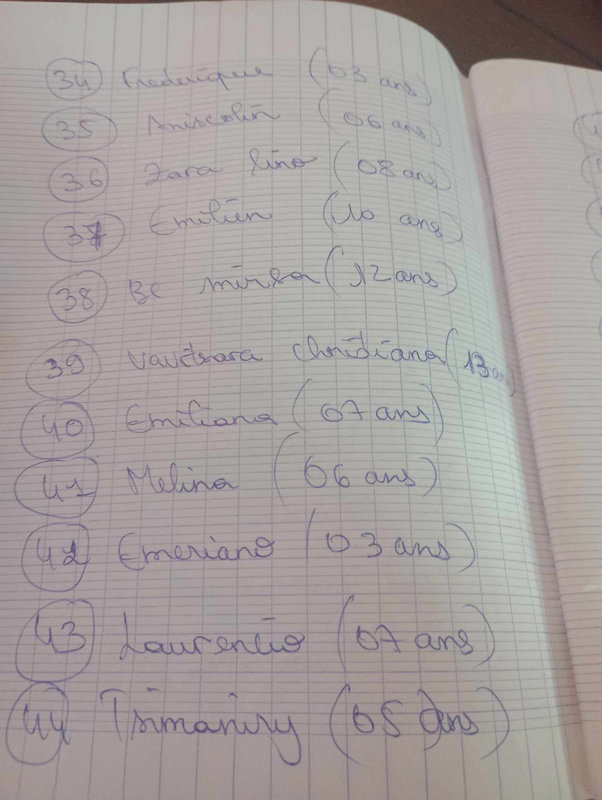 34 Frederique (03 ans)
35 Aniscolin (06 ans)
36 Zara lino (08 ans)
37 Emilien (10 ans)
38 Be mirsa (12 ans)
39 Christiana (13 ans)
40 Emiliana (07 ans)
41 Melina (06 ans)
42 Emeriano (03 ans)
43 Laurencio (07 ans)
44 (05 ans)